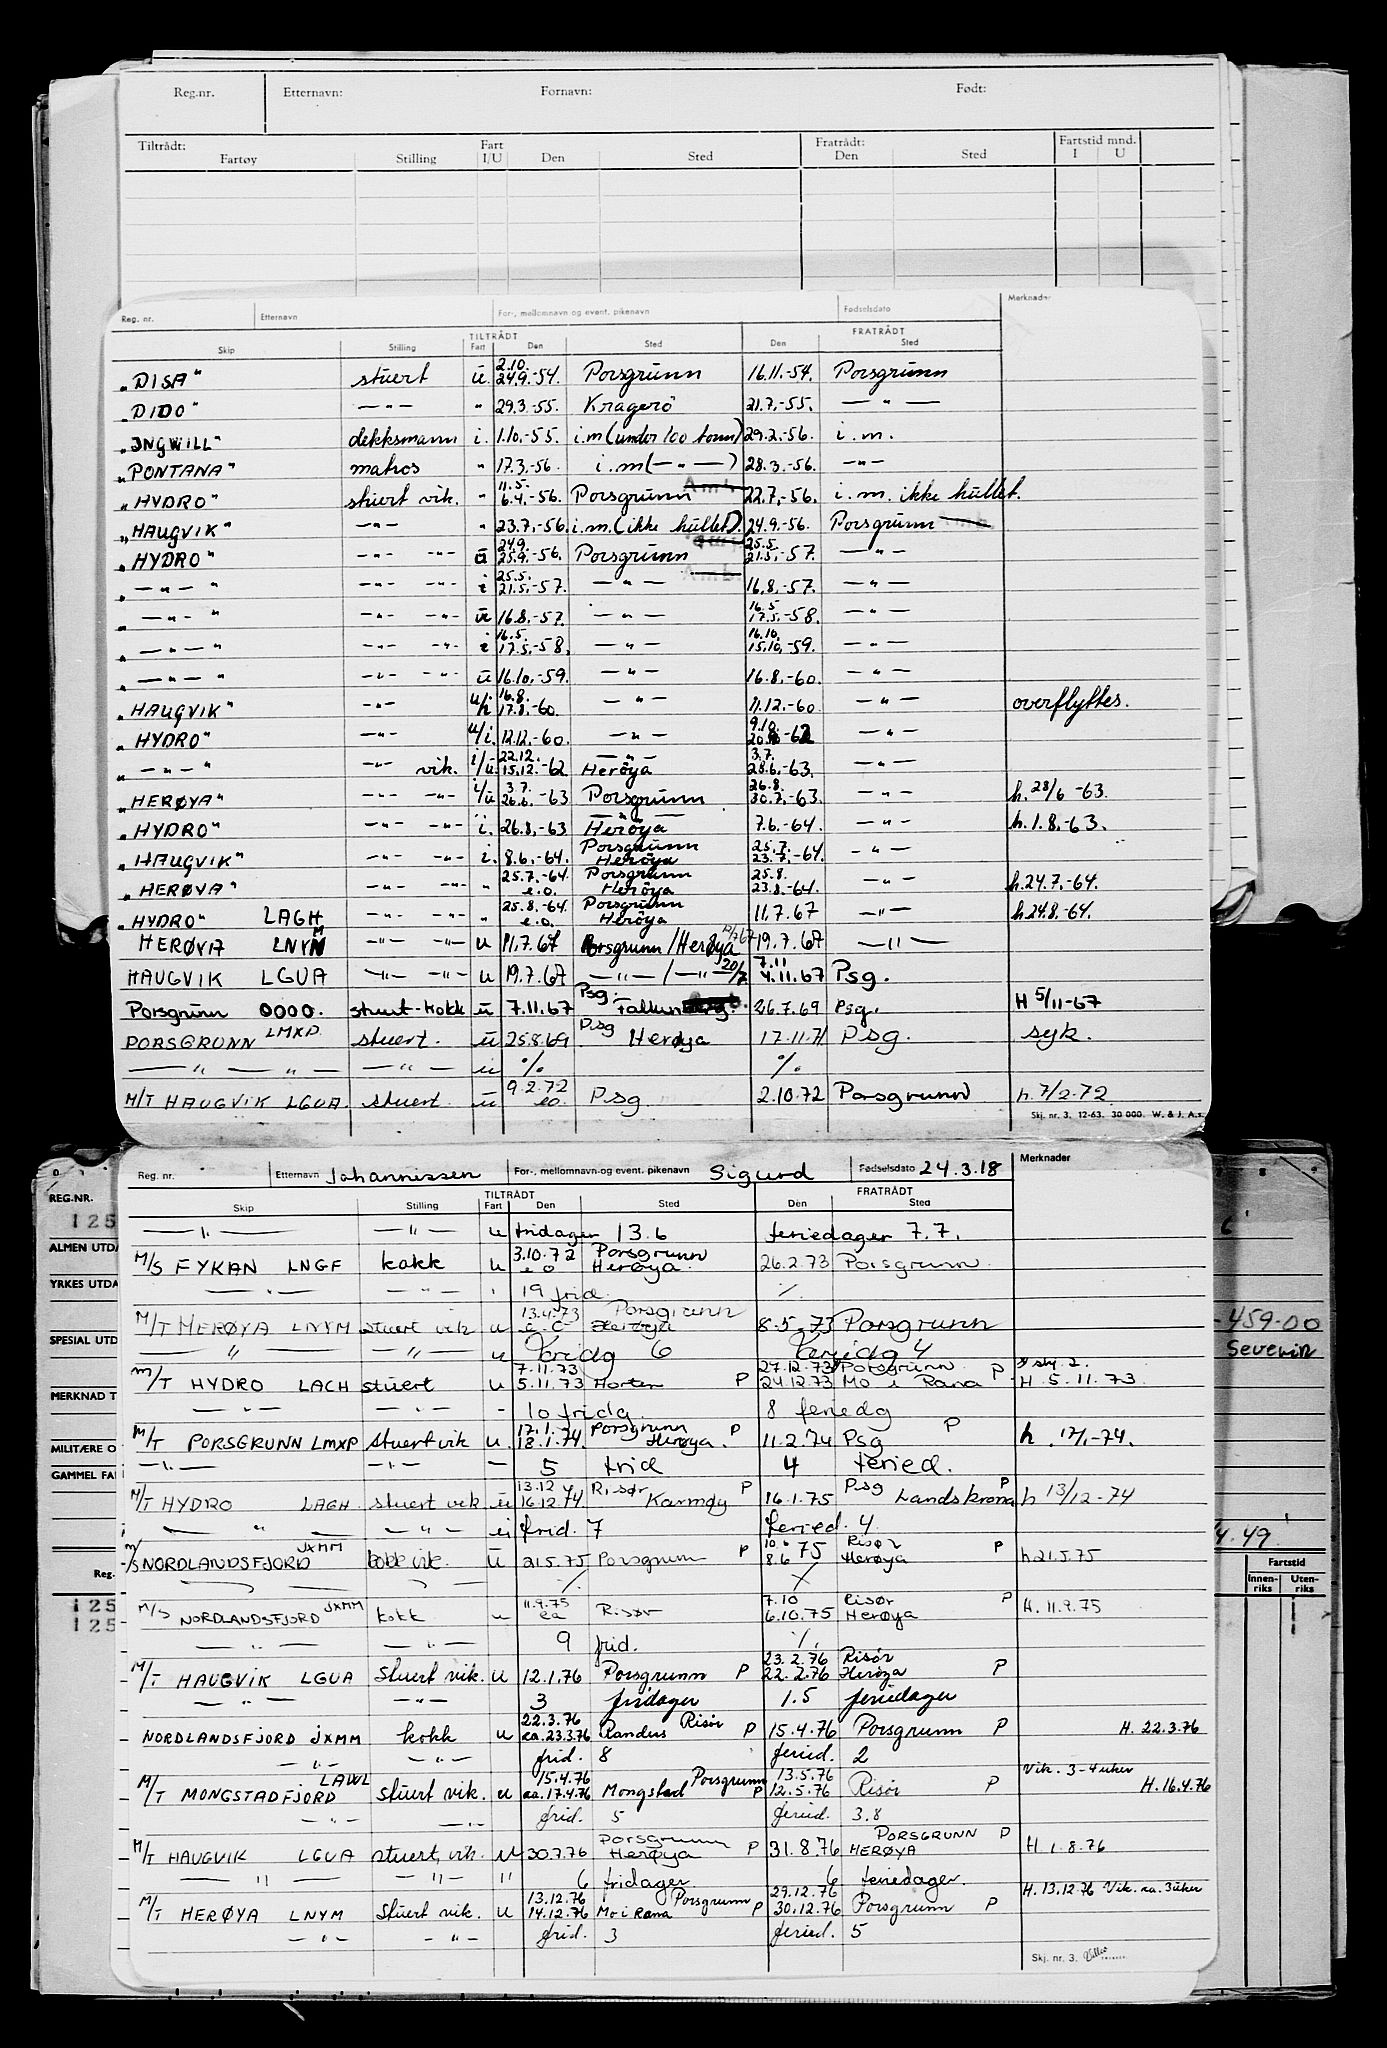 Reg.nr. Etternavn: Fornavn: Født:
Tiltrådt: Fart Fratrådt: Fartstid mnd.
Fartøy Stilling I/U Den Sted Den Sted I U
Reg. nr. Etternavn For-, mellomnavn og event. pikenavn Fødselsdato Merknader
TILTRÅDT FRATRÅDT
Skip Stilling Fart Den Sted Den Sted
2.10.
„DISA" stuert u. 24.9.-54. Porsgrunn 16.11.-54. Porsgrunn
„DIDO" —"— " 29.3.-55. Kragerö 21.7.-55. —"—
„INGWILL" dekksmann i. 1.10.-55. i.m (under 100 tonn) 29.2.-56. i.m.
„PONTANA" matros " 17.3.-56. i.m (—"—) 28.3.-56. —"—
11.5.
„HYDRO" stuert vik. " 6.4.-56. Porsgrunn 22.7.-56. i.m. ikke hullet.
„HAUGVIK" —"— " 23.7.-56. i.m. (ikke hullet). 24.9.-56. Porsgrunn
24.9. 25.5.
„HYDRO" —"— —"— u 25.9.-56. Porsgrunn 21.5.-57. —"—
25.5.
„—"—" —"— —"— i 21.5.-57. —"— 16.8.-57. —"—
16.5.
„—"—" —"— —"— u 16.8.-57. —"— 17.5.-58. —"—
16.5. 16.10.
„—"—" —"— —"— i 17.5.-58. —"— 15.10.-59. —"—
„—"—" —"— —"— u 16.10.-59. —"— 16.8.-60. —"—
16.8.
„HAUGVIK" —"— u/i 17.8.-60. —"— 11.12.-60 —"— overflyttes.
9.10.
„HYDRO" —"— u/i. 12.12.-60. —"— -62 —"—
22.12. —"— 3.7.
„—"—" —"— vik. i/u. 15.12.-62 Herøya 28.6.-63. —"—
3.7. 26.8.
„HERØYA" —"— —"— i/u 26.6.-63 Porsgrunn 30.7.-63. —"— h. 28/6 -63.
—"—
„HYDRO" —"— —"— i. 26.8.-63 Herøya 7.6.-64. —"— h. 1.8.-63.
Porsgrunn 25.7.
„HAUGVIK" —"— —"— i. 8.6.-64. Herøya 23.7.-64. —"—
25.7.-64. Porsgrunn 25.8.
„HERØYA" —"— —"— " e.o. Herøya 23.8.-64. —"— h. 24.7.-64.
25.8.-64. Porsgrunn
„HYDRO" LAGH —"— —"— " e.o. Herøya 11.7.67 —"— h 24.8.-64.
HERØYA LNYM —"— —"— u 11.7.67 Porsgrunn/Herøya 19.7.67 —"—
7.11
HAUGVIK LGUA —"— —"— u 19.7.67 —"— / —"— 20/7 4.11.67 Psg.
Psg.
Porsgrunn 0000. stuert-kokk u 7.11.67 26.7.69 Psg. H 5/11-67
PORSGRUNN LMXP stuert. u 25.8.69 Psg Herøya 17.11.71 Psg. syk.
—"— —"— —"— u % %
9.2.72
M/T HAUGVIK LGUA. stuert u eo. Psg 2.10.72 Porsgrunn h. 7/2-72
Skj. nr. 3. 12-63. 30 000. W. & J. A.s
Reg. nr. Etternavn Johannissen For-, mellomnavn og event. pikenavn Sigurd Fødselsdato 24.3.18 Merknader
TILTRÅDT FRATRÅDT
Skip Stilling Fart Den Sted Den Sted
—"— —"— u fridager 13.6 feriedager 7.7.
3.10.72 Porsgrunn
M/S FYKAN LNGF kokk u e o Herøya. 26.2.73 Porsgrunn
—"— —"— " 19 frid. %
13.4.73 Porsgrunn
M/T HERØYA LNYM stuert vik u e o Herøya 8.5.73 Porsgrunn
—"— —"— u Fridg 6 Feriedg 4
7.11.73 27.12.73 Porsgrunn P
M/T HYDRO LACH stuert u 5.11.73 Horten P 24.12.73 Mo i Rana H 5.11.73
—"— —"— - 10 fridg 8 feriedg
17.1. Porsgrunn P P
M/T PORSGRUNN LMXP stuert vik u 18.1.74. Herøya. 11.2.74 Psg h. 17/1-74.
—"— —"— — 5 frid 4 feried.
13.12 Risør P Psg P
M/T HYDRO LAGH stuert vik u 16.12.74 Karmøy 16.1.75 Landskrona h 13/12-74
—"— —"— u frid. 7 feried. 4
JXMM 10.6 Risør
M/S NORDLANDSFJORD kokk vik. u 21.5.75 Porsgrunn P 8.6 75 Herøya P h 21.5.75
11.9.75 7.10 Risør P
M/S NORDLANDSFJORD JXMM kokk u ca Risør 6.10.75 Herøya H. 11.9.75
—"— —"— 9 frid. %
23.2.76 Risør
M/T HAUGVIK LGUA Stuert vik. u 12.1.76 Porsgrunn P 22.2.76 Herøya P
—"— —"— 3 fridager 1.5 feriedager
22.3.76 Risør
NORDLANDSFJORD JXMM kokk u ca. 23.3.76 Randers P 15.4.76 Porsgrunn P H. 22.3.76
—"— —"— frid. 8 feried. 2
LAWL 15.4.76 Porsgrunn 13.5.76 Vik. 3-4 uker
M/T MONGSTADFJORD Stuert vik. u ca. 17.4.76 Mongstad P 12.5.76 Risør P H. 16.4.76
—"— —"— frid. 5 feried. 3.8
Porsgrunn PORSGRUNN P
M/T HAUGVIK LGUA stuert, vik. u 30.7.76 Herøya P 31.8.76 HERØYA H 1.8.76
—"— —"— " 6 fridager 6 feriedager.
13.12.76 Porsgrunn 29.12.76 H. 13.12.76 Vik. ca. 3 uker
M/T HERØYA LNYM Stuert vik. u 14.12.76 Mo i Rana P 30.12.76 Porsgrunn P
—"— —"— frid. 3 feried. 5
Skj. nr. 3.
REG.NR.
125
ALMEN UTDA
YRKES UTDA
SPESIAL UTD
MERKNAD T
MILITÆRE O
GAMMEL FA
Reg.
125
125
-459-00
Severin
4.49
Fartstid
Innenriks Utenriks